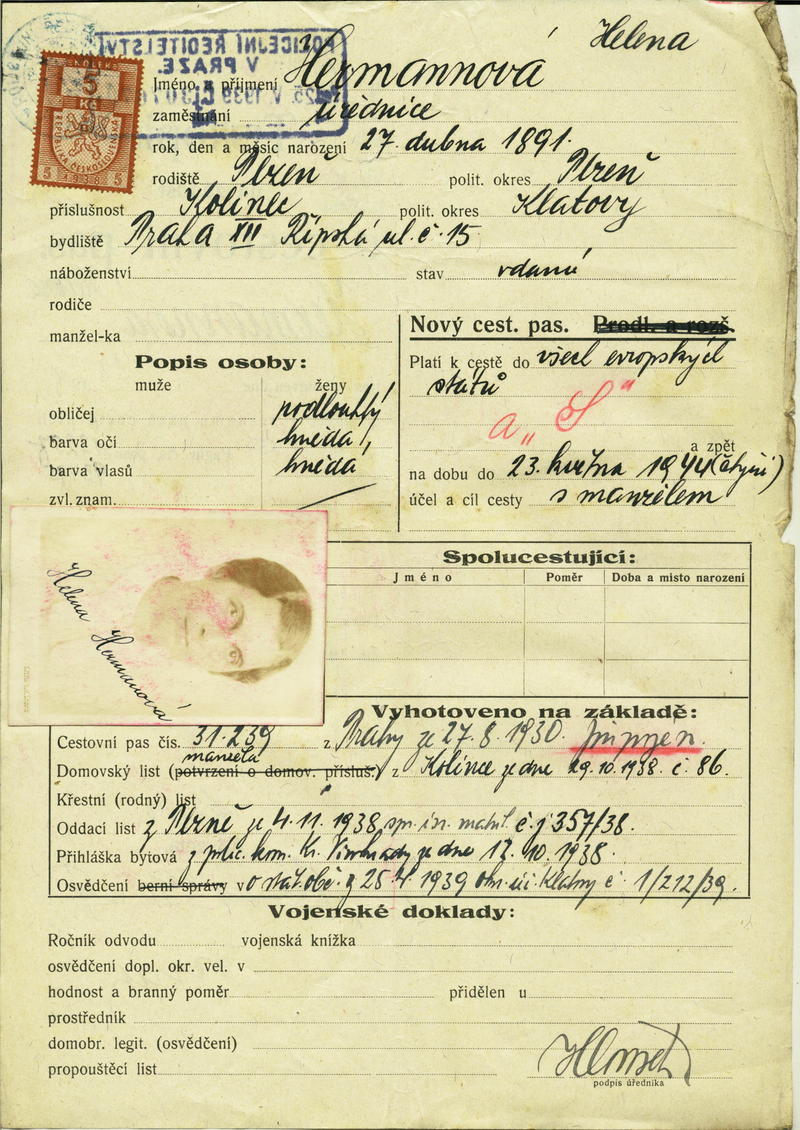 POLICEJNÍ ŘEDITELSTVÍ
V PRAZE.
KOLEK
5
Kč
REPUBLIKA ČESKOSLOVENSKÁ
5 1938 5
Helena
Jméno a příjmení Heřmannová
zaměstnání úřednice
rok, den a měsíc narození 27. dubna 1891.
rodiště Plzeň polit. okres Plzeň
příslušnost Kolinec polit. okres Klatovy
bydliště Praha XII Řipská ul. č. 15
náboženství stav vdaná
rodiče
manžel-ka
Nový cest. pas. Prodl. a rozš.
Popis osoby:
muže ženy
obličej podlouhlý
barva očí hnědá
barva vlasů hnědá
zvl. znam.
Platí k cestě do všech evropských
států
a „S“
a zpět
na dobu do 23. května 1944 (čtyři)
účel a cíl cesty s manželem
Helena Heřmanová
Spolucestující:
Jméno Poměr Doba a místo narození
Vyhotoveno na základě:
Cestovní pas čís. 31.239 z Prahy ze 27.8.1930.
manžela
Domovský list (potvrzení o domov. přísluš.) z Kolince ze dne 29.10.1938 č. 86.
Křestní (rodný) list
Oddací list z Plzně ze 4.11.1938 č.j 357/38.
Přihláška bytová z polic. kom. Kr. Vinohrady ze dne 17.10.1938.
Osvědčení berní správy v o stát. obč. z 25.4.1939 Klatovy č. 1/212/39.
Vojenské doklady:
Ročník odvodu vojenská knížka
osvědčení dopl. okr. vel. v
hodnost a branný poměr přidělen u
prostředník
domobr. legit. (osvědčení)
propouštěcí list
podpis úředníka